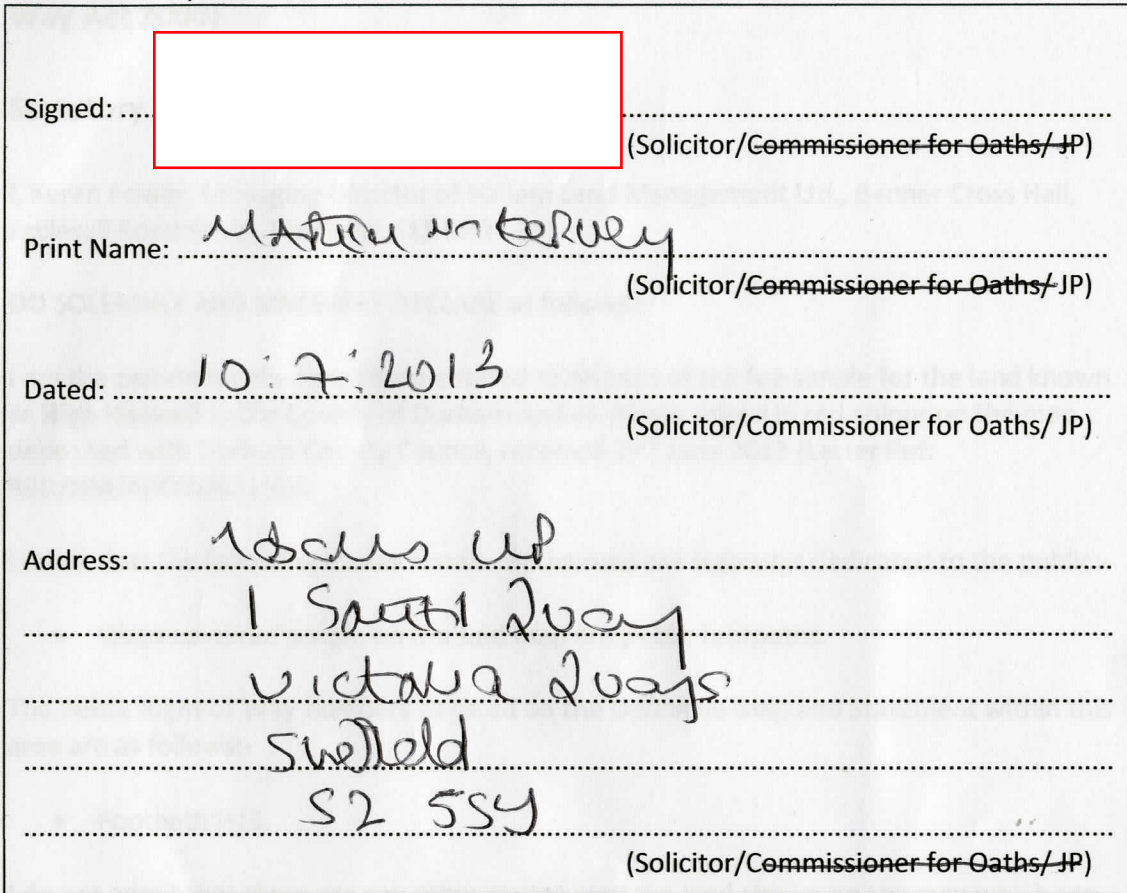 Signed: ........
(Solicitor/Commissioner for Oaths/ JP)
Print Name: Martin McKervey
(Solicitor/Commissioner for Oaths/ JP)
Dated: 10:7:2013
(Solicitor/Commissioner for Oaths/ JP)
Address: Nabarro LLP
1 South Quay
Victoria Quays
Sheffield
S2 5SY
(Solicitor/Commissioner for Oaths/ JP)